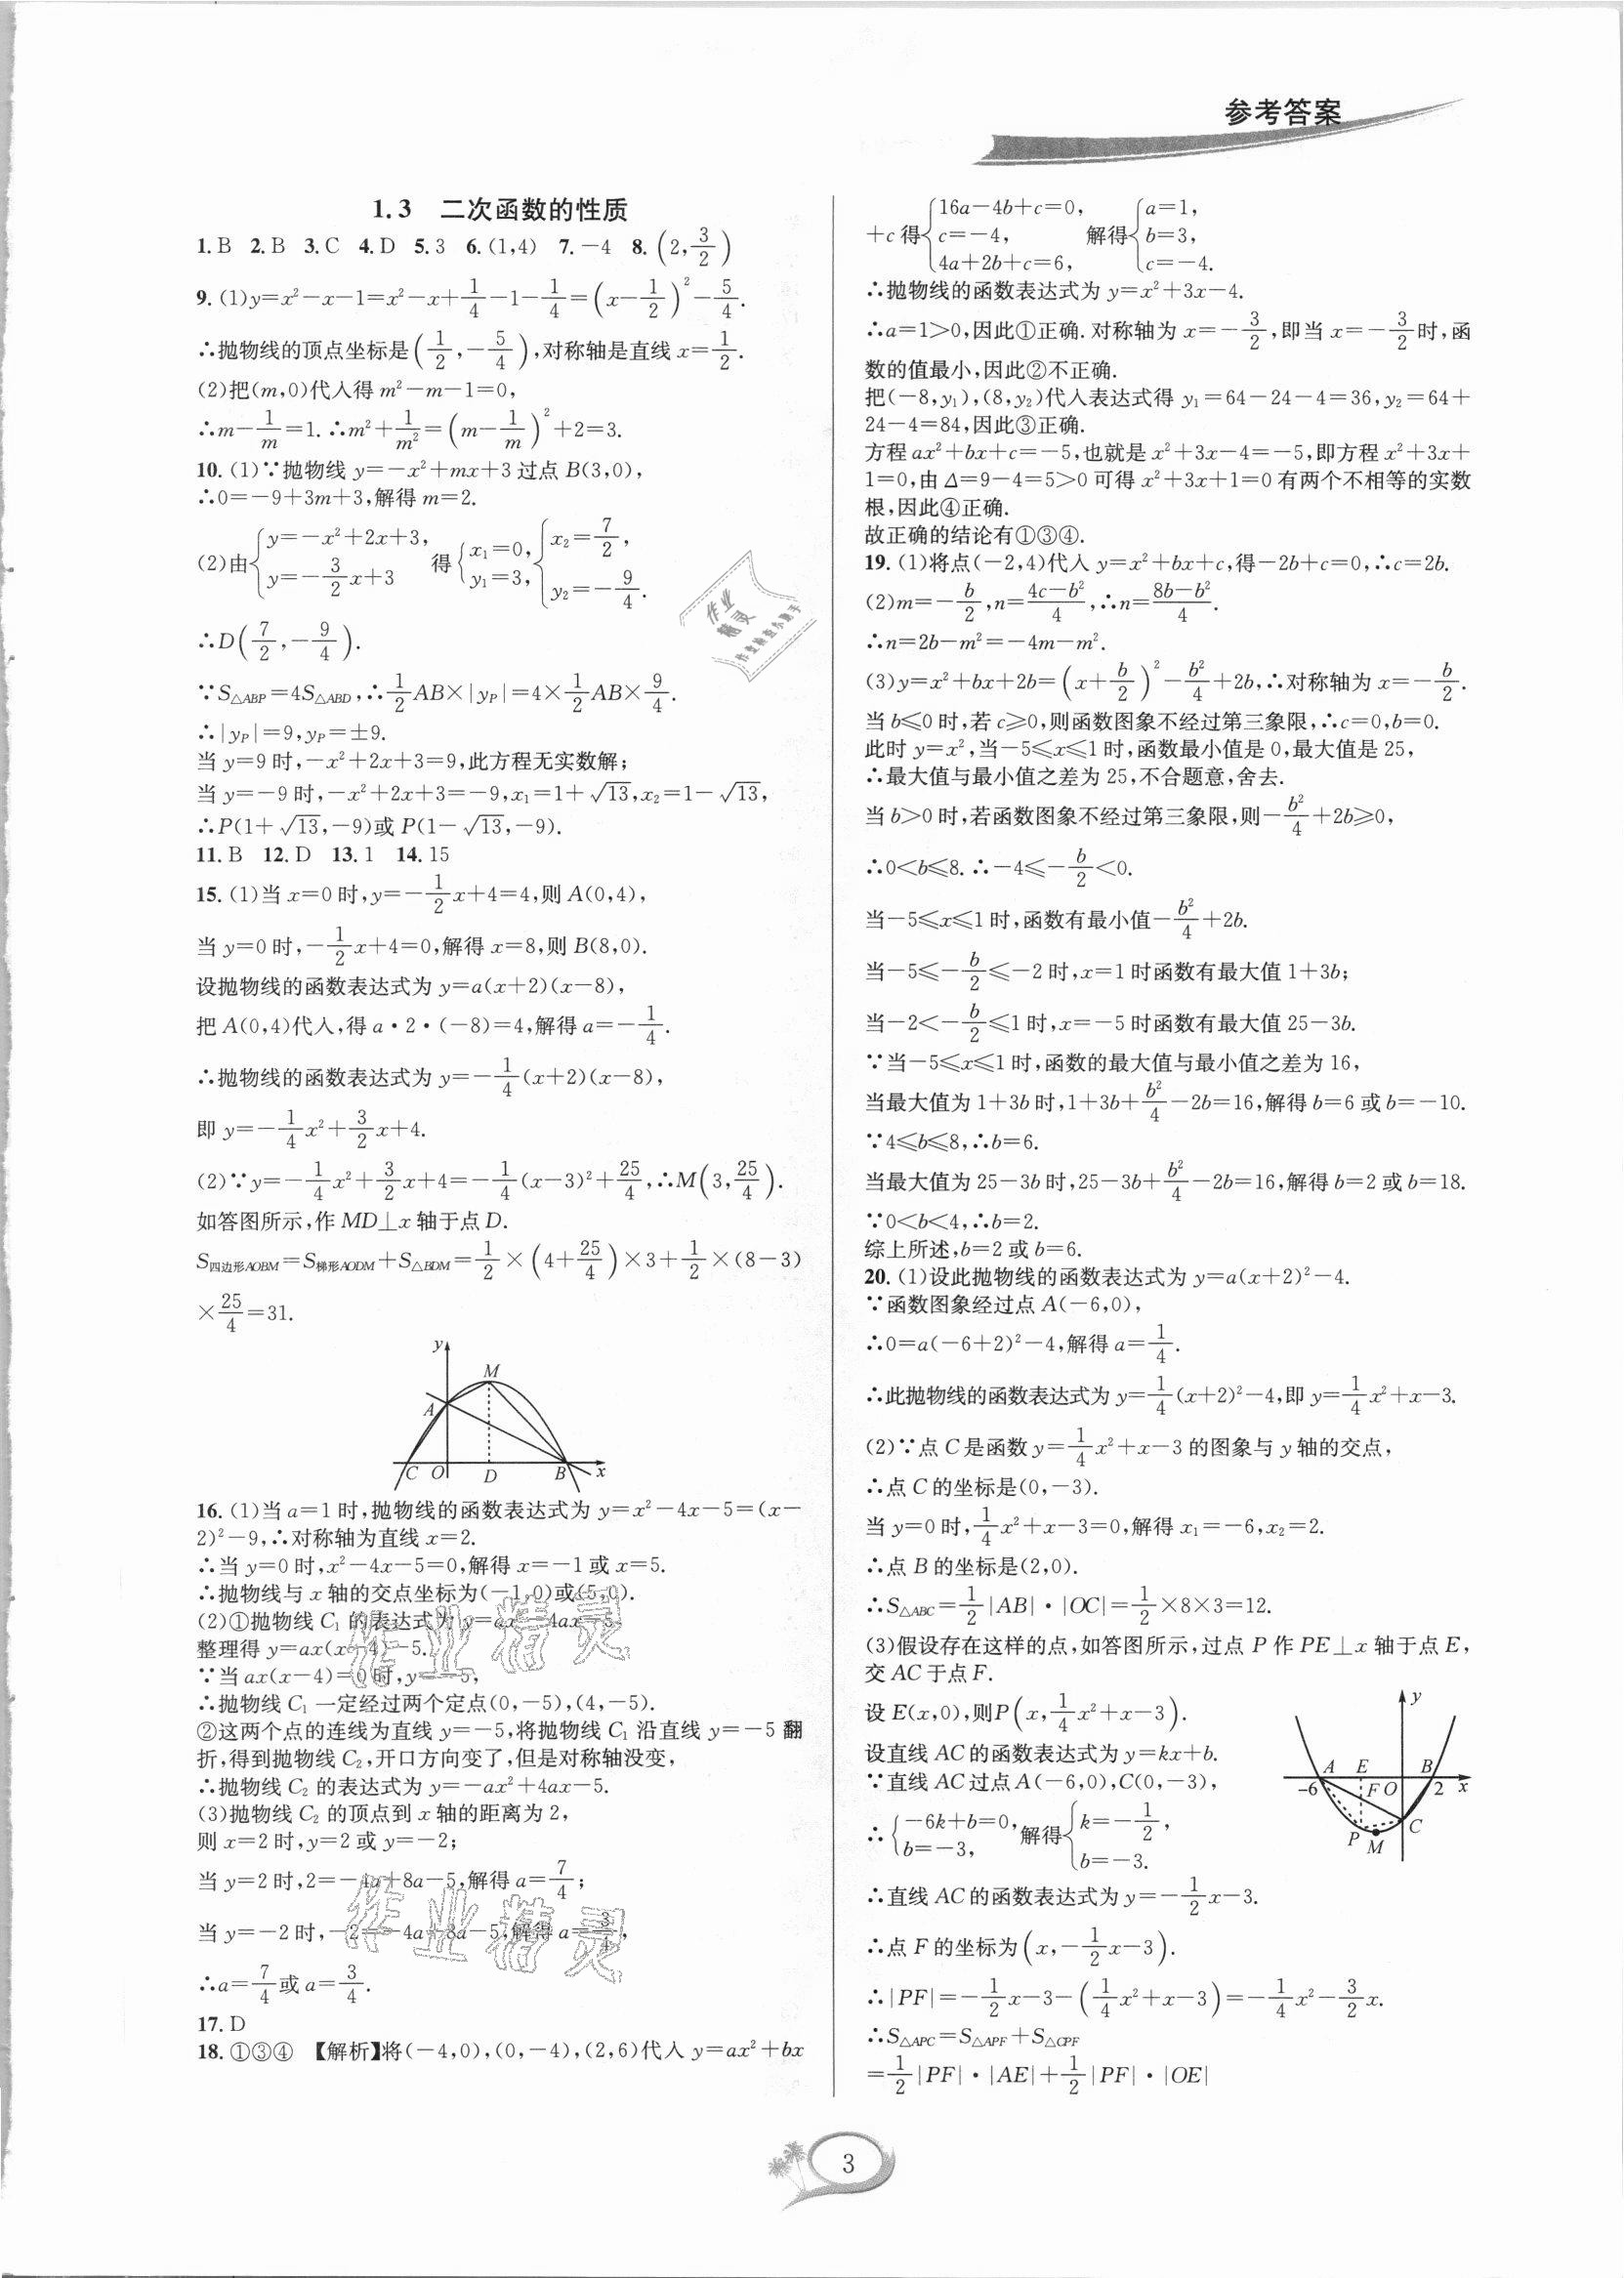 参考答案
1.3 二次函数的性质
1.B 2.B 3.C 4.D 5.3 6.(1,4) 7.-4 8.(2,3/2)
9.(1)y=x²-x-1=x²-x+1/4-1-1/4=(x-1/2)²-5/4.
∴抛物线的顶点坐标是(1/2,-5/4),对称轴是直线x=1/2.
(2)把(m,0)代入得m²-m-1=0,
∴m-1/m=1.∴m²+1/m²=(m-1/m)²+2=3.
10.(1)∵抛物线y=-x²+mx+3过点B(3,0),
∴0=-9+3m+3,解得m=2.
(2)由{y=-x²+2x+3, y=-3/2x+3 得{x₁=0, y₁=3, {x₂=7/2, y₂=-9/4.
∴D(7/2,-9/4).
∵S△ABP=4S△ABD,∴1/2AB×|yP|=4×1/2AB×9/4.
∴|yP|=9,yP=±9.
当y=9时,-x²+2x+3=9,此方程无实数解;
当y=-9时,-x²+2x+3=-9,x₁=1+√13,x₂=1-√13,
∴P(1+√13,-9)或P(1-√13,-9).
11.B 12.D 13.1 14.15
15.(1)当x=0时,y=-1/2x+4=4,则A(0,4),
当y=0时,-1/2x+4=0,解得x=8,则B(8,0).
设抛物线的函数表达式为y=a(x+2)(x-8),
把A(0,4)代入,得a·2·(-8)=4,解得a=-1/4.
∴抛物线的函数表达式为y=-1/4(x+2)(x-8),
即y=-1/4x²+3/2x+4.
(2)∵y=-1/4x²+3/2x+4=-1/4(x-3)²+25/4,∴M(3,25/4).
如答图所示,作MD⊥x轴于点D.
S四边形AOBM=S梯形AODM+S△BDM=1/2×(4+25/4)×3+1/2×(8-3)
×25/4=31.
y
M
A
C O D B x
16.(1)当a=1时,抛物线的函数表达式为y=x²-4x-5=(x-
2)²-9,∴对称轴为直线x=2.
∴当y=0时,x²-4x-5=0,解得x=-1或x=5.
∴抛物线与x轴的交点坐标为(-1,0)或(5,0).
(2)①抛物线C₁的表达式为y=ax²-4ax-5,
整理得y=ax(x-4)-5.
∵当ax(x-4)=0时,y=-5,
∴抛物线C₁一定经过两个定点(0,-5),(4,-5).
②这两个点的连线为直线y=-5,将抛物线C₁沿直线y=-5翻
折,得到抛物线C₂,开口方向变了,但是对称轴没变,
∴抛物线C₂的表达式为y=-ax²+4ax-5.
(3)抛物线C₂的顶点到x轴的距离为2,
则x=2时,y=2或y=-2;
当y=2时,2=-4a+8a-5,解得a=7/4;
当y=-2时,-2=-4a+8a-5,解得a=3/4,
∴a=7/4或a=3/4.
17.D
18.①③④ 【解析】将(-4,0),(0,-4),(2,6)代入y=ax²+bx
+c得{16a-4b+c=0, c=-4, 4a+2b+c=6, 解得{a=1, b=3, c=-4.
∴抛物线的函数表达式为y=x²+3x-4.
∴a=1>0,因此①正确.对称轴为x=-3/2,即当x=-3/2时,函
数的值最小,因此②不正确.
把(-8,y₁),(8,y₂)代入表达式得y₁=64-24-4=36,y₂=64+
24-4=84,因此③正确.
方程ax²+bx+c=-5,也就是x²+3x-4=-5,即方程x²+3x+
1=0,由Δ=9-4=5>0可得x²+3x+1=0有两个不相等的实数
根,因此④正确.
故正确的结论有①③④.
19.(1)将点(-2,4)代入y=x²+bx+c,得-2b+c=0,∴c=2b.
(2)m=-b/2,n=(4c-b²)/4,∴n=(8b-b²)/4.
∴n=2b-m²=-4m-m².
(3)y=x²+bx+2b=(x+b/2)²-b²/4+2b,∴对称轴为x=-b/2.
当b≤0时,若c≥0,则函数图象不经过第三象限,∴c=0,b=0.
此时y=x²,当-5≤x≤1时,函数最小值是0,最大值是25,
∴最大值与最小值之差为25,不合题意,舍去.
当b>0时,若函数图象不经过第三象限,则-b²/4+2b≥0,
∴0<b≤8.∴-4≤-b/2<0.
当-5≤x≤1时,函数有最小值-b²/4+2b.
当-5≤-b/2≤-2时,x=1时函数有最大值1+3b;
当-2<-b/2≤1时,x=-5时函数有最大值25-3b.
∵当-5≤x≤1时,函数的最大值与最小值之差为16,
当最大值为1+3b时,1+3b+b²/4-2b=16,解得b=6或b=-10.
∵4≤b≤8,∴b=6.
当最大值为25-3b时,25-3b+b²/4-2b=16,解得b=2或b=18.
∵0<b<4,∴b=2.
综上所述,b=2或b=6.
20.(1)设此抛物线的函数表达式为y=a(x+2)²-4.
∵函数图象经过点A(-6,0),
∴0=a(-6+2)²-4,解得a=1/4.
∴此抛物线的函数表达式为y=1/4(x+2)²-4,即y=1/4x²+x-3.
(2)∵点C是函数y=1/4x²+x-3的图象与y轴的交点,
∴点C的坐标是(0,-3).
当y=0时,1/4x²+x-3=0,解得x₁=-6,x₂=2.
∴点B的坐标是(2,0).
∴S△ABC=1/2|AB|·|OC|=1/2×8×3=12.
(3)假设存在这样的点,如答图所示,过点P作PE⊥x轴于点E,
交AC于点F.
设E(x,0),则P(x,1/4x²+x-3).
设直线AC的函数表达式为y=kx+b.
∵直线AC过点A(-6,0),C(0,-3),
∴{-6k+b=0, b=-3, 解得{k=-1/2, b=-3.
∴直线AC的函数表达式为y=-1/2x-3.
∴点F的坐标为(x,-1/2x-3).
∴|PF|=-1/2x-3-(1/4x²+x-3)=-1/4x²-3/2x.
∴S△APC=S△APF+S△CPF
=1/2|PF|·|AE|+1/2|PF|·|OE|
y
A E B
-6 F O 2 x
P M C
作业精灵
作业检查小助手
作业精灵
作业精灵
3